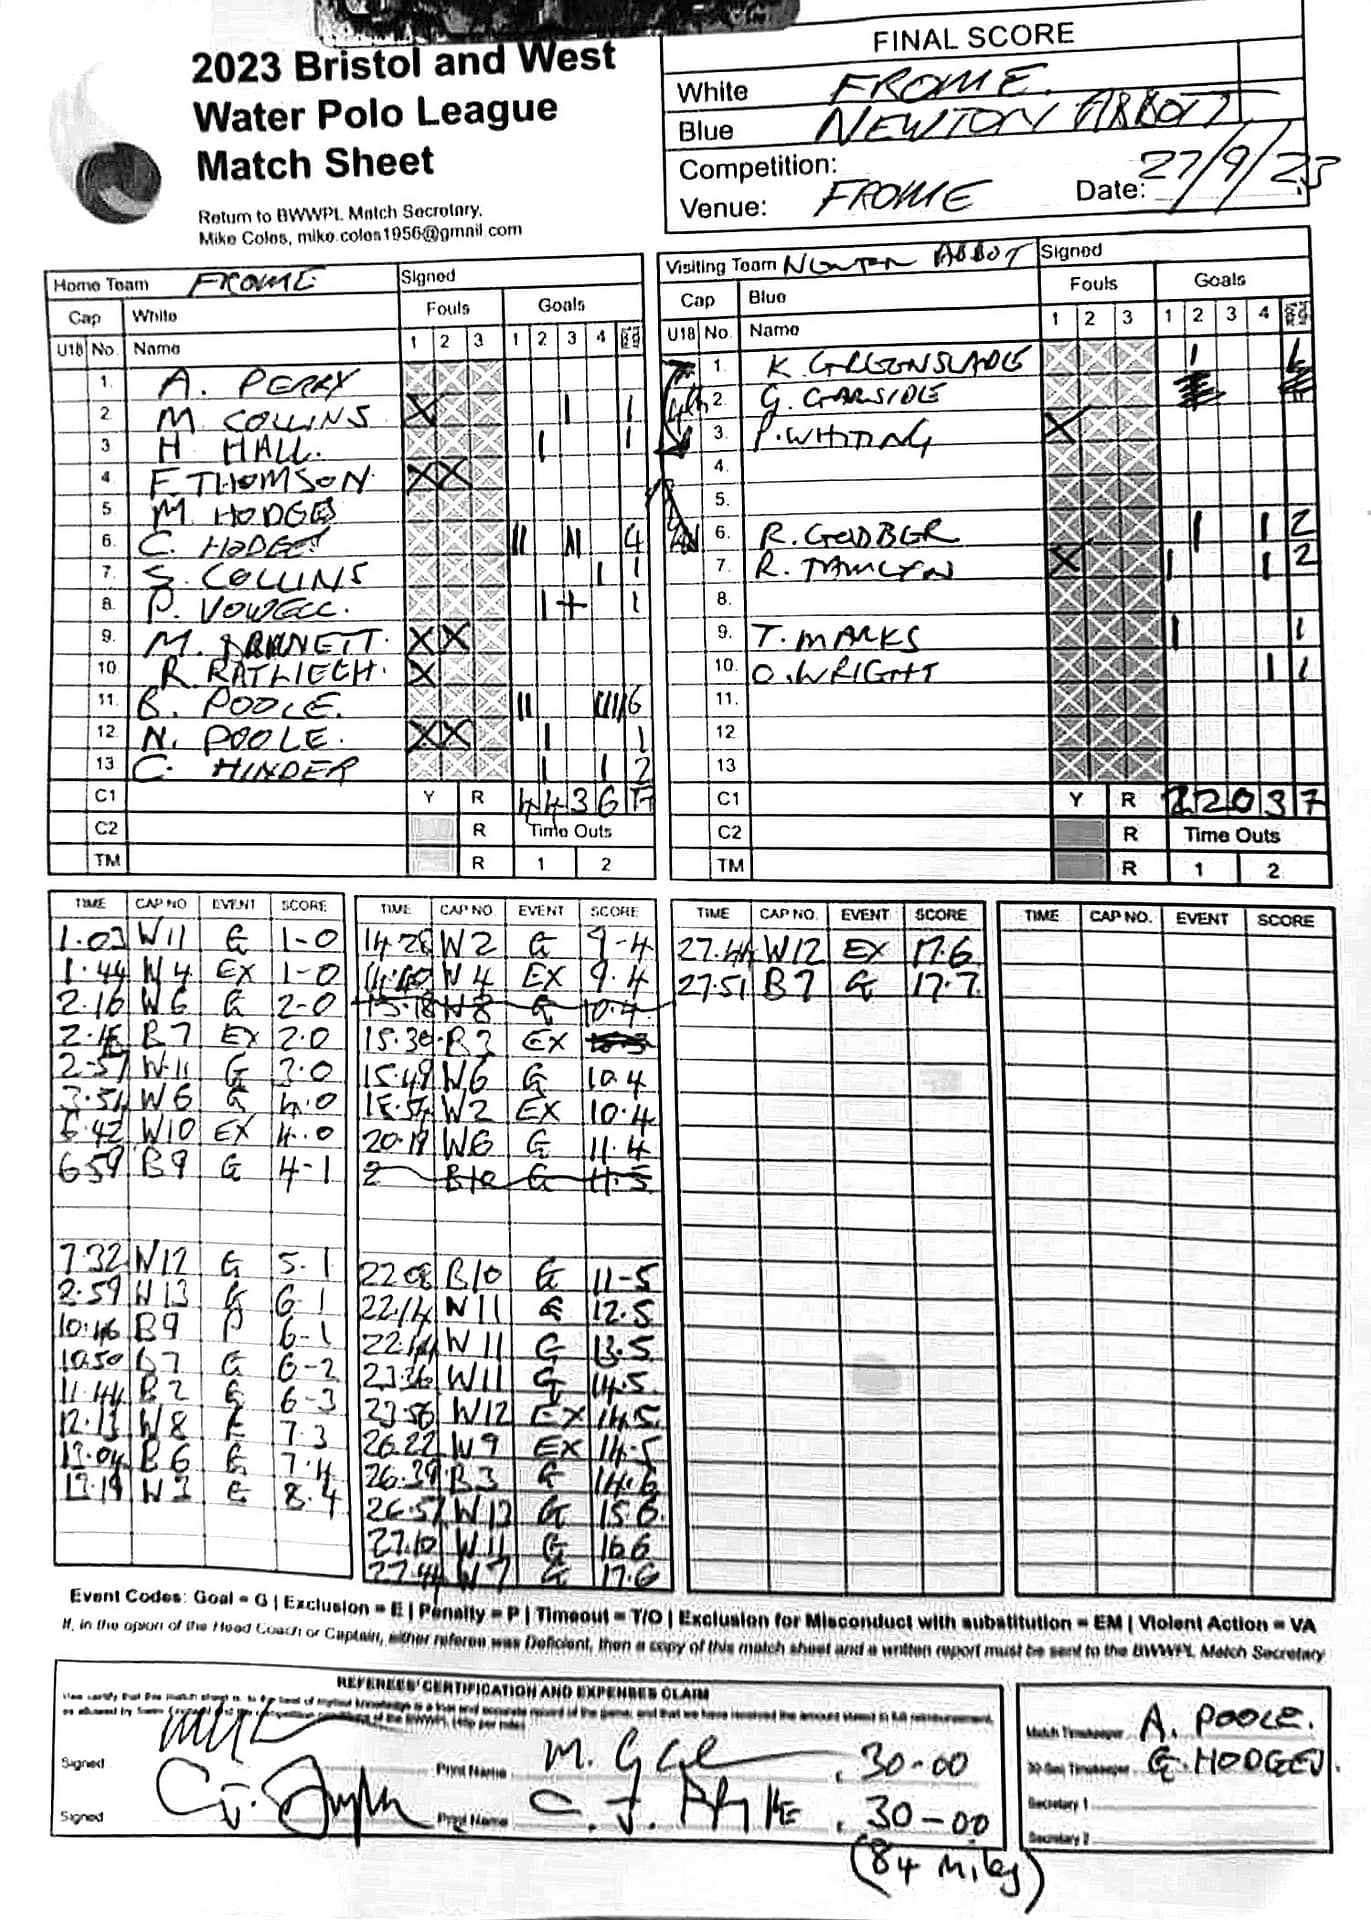 2023 Bristol and West
Water Polo League
Match Sheet
Return to BWWPL Match Secretary,
Mike Coles, mike.coles1956@gmail.com
FINAL SCORE
White FROME.
Blue NEWTON ABBOTT
Competition:
Venue: FROME Date: 27/9/23
Home Team FROME Signed
Cap White Fouls Goals
U18 No. Name 1 2 3 1 2 3 4
1. A. PERRY
2. M. COLLINS X 1 1
3. H HALL. 1 1
4. F. THOMSON. X X
5. M. HODGES
6. C. HODGES 11 11 4
7. S. COLLINS 1 1
8. P. VOWELL. 1 1
9. M. X X
10. R. X
11. B. POOLE. 11 1111 6
12. N. POOLE. X X 1 1
13 C. HINDER 1 1 2
C1 Y R 4 4 3 6 17
C2 R Time Outs
TM R 1 2
Visiting Team NEWTON ABBOT Signed
Cap Blue Fouls Goals
U18 No. Name 1 2 3 1 2 3 4
1. K. GREENSLADE 1 1
2. G. GARSIDE
3. P. WHITING X
4.
5.
6. R. 1 1 2
7. R. TAMLYN X 1 1 2
8.
9. T. MARKS 1 1
10. O. WRIGHT 1 1
11.
12
13
C1 Y R 2 2 0 3 7
C2 R Time Outs
TM R 1 2
TIME CAP NO EVENT SCORE
1.03 W11 G 1-0
1.44 W4 EX 1-0
2.16 W6 G 2-0
B7 EX 2.0
2.57 W11 G 3.0
3.54 W6 G 4.0
6.42 W10 EX 4.0
6.59 B9 G 4-1
7.32 W12 G 5.1
W13 G 6-1
10.46 B9 P 6-1
10.50 B7 G 6-2
11.44 B2 G 6-3
12.13 W8 G 7.3
13.04 B6 G 7.4
13.19 W3 G 8.4
TIME CAP NO. EVENT SCORE
14.28 W2 G 9-4
W4 EX 9.4
15.18 W8 G 10.4
15.30 B3 EX
15.49 W6 G 10.4
15.54 W2 EX 10.4
20.19 W6 G 11.4
2 B10 G 11-5
22.08 B10 G 11-5
22.14 W11 G 12.5
W11 G 13.5
23.36 W11 G 14.5
23.56 W12 EX 14.5
26.22 W9 EX 14-5
26.39 B3 G 14.6
26.51 W13 G 15.6
27.10 W11 G 16.6
27.44 W7 G 17.6
TIME CAP NO. EVENT SCORE
27.44 W12 EX 17.6
27.51 B7 G 17.7
TIME CAP NO. EVENT SCORE
Event Codes: Goal = G | Exclusion = E | Penalty = P | Timeout = T/O | Exclusion for Misconduct with substitution = EM | Violent Action = VA
If, in the opion of the Head Coach or Captain, either referee was Deficient, then a copy of this match sheet and a written report must be sent to the BWWPL Match Secretary
REFEREES' CERTIFICATION AND EXPENSES CLAIM
Signed Print Name M. 30-00
Signed Print Name C. J. 30-00
(84 miles)
Match Timekeeper A. POOLE.
30 Sec Timekeeper G. HODGES.
Secretary 1
Secretary 2